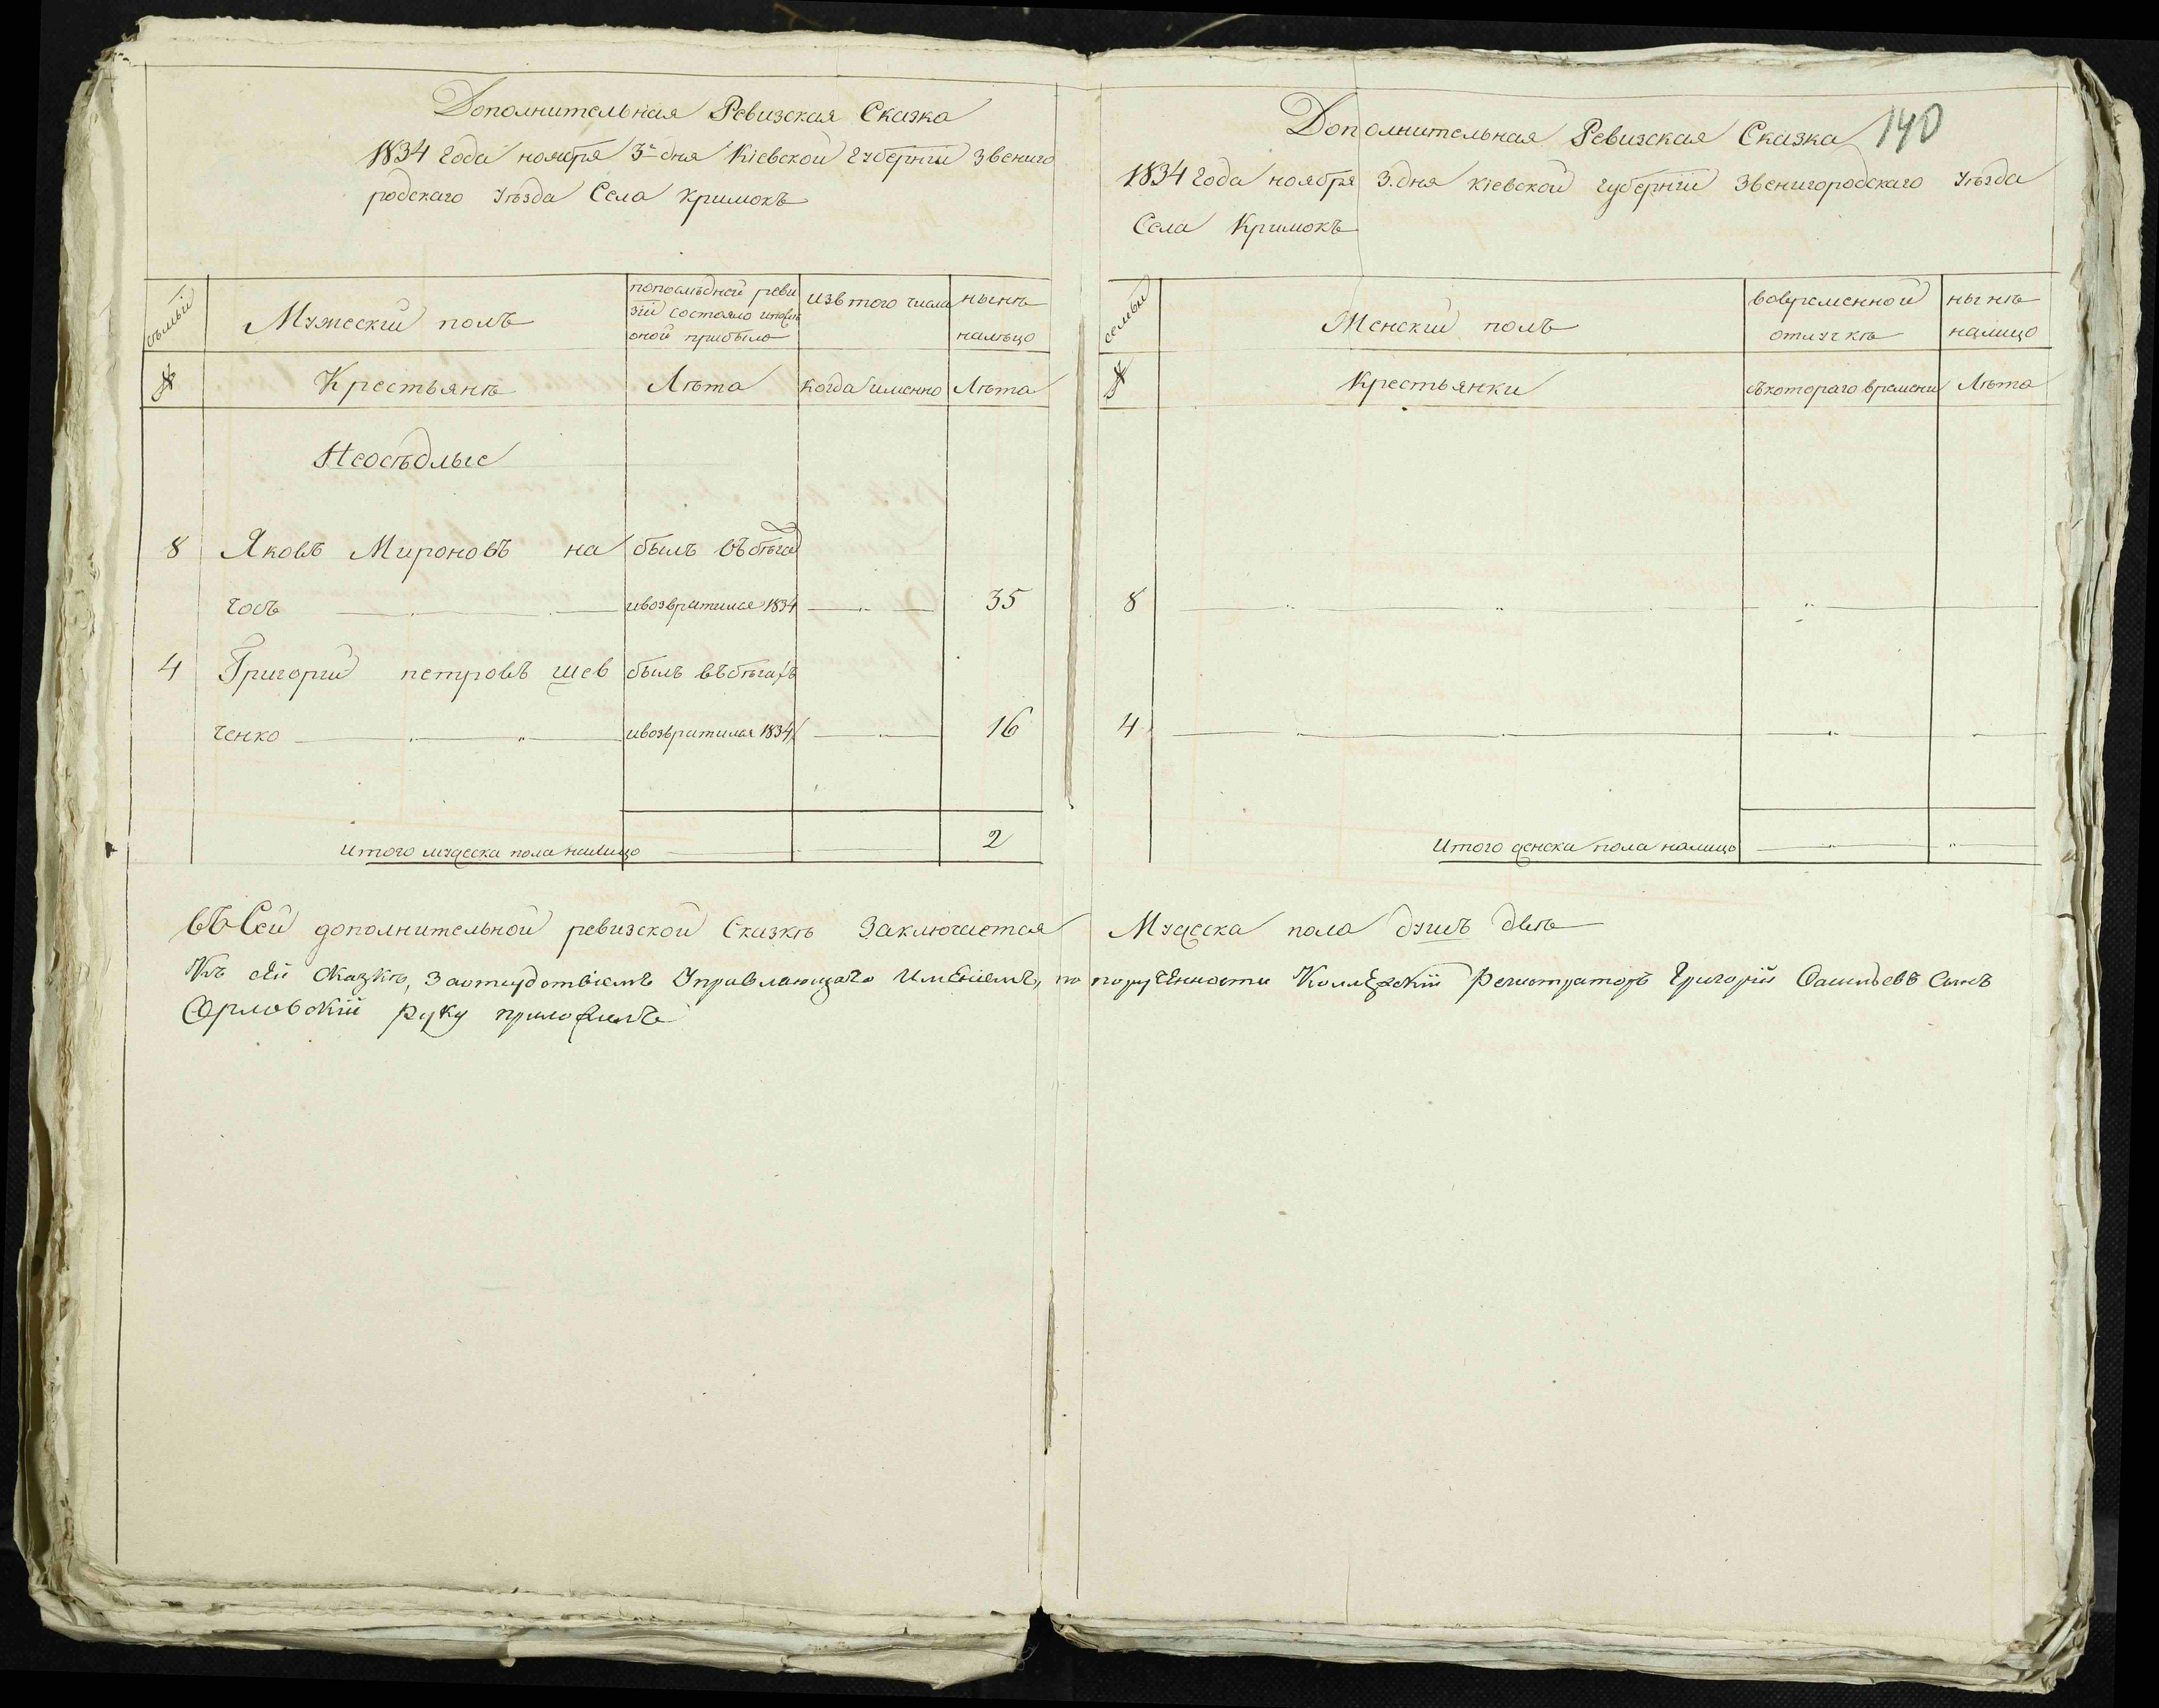 Дополнительная Ревизская Сказка
1834 Года ноября 3го дня Кіевской Губерніи Звениго
родскаго Уѣзда Села Кримокъ
семьи
Мужеский полъ
попослѣдней реви
зіи состояло ипосли
оной прибыло
изв того числа
нынѣ
налицо
№
Крестьянѣ
Лѣта
когда именно
Лѣта
Неосѣдлые
8 Яковъ Мироновъ на былъ въбѣгах
ивозвратился 1834 35
4 Григорий петровъ шев былъ вбѣгахъ
ченко ивозвратился 1834 16
Итого мужеска пола налицо 2
Дополнительная Ревизская Сказка 140
1834 Года ноября 3. дня Кіевской Губерніи Звенигородскаго Уѣзда
Села Кримокъ
семьи
Женский полъ
вовременной
отлучкѣ
нынѣ
налицо
№
Крестьянки
съкотораго времени
Лѣта
8
4
Итого женска пола налицо
Въ Сей дополнительной ревизской Сказкѣ Заключается Мужеска пола душъ двѣ
Къ сей Сказкѣ, Заотсудствіемъ Управляющаго Имѣніемъ, по порученности Коллежскій Регистраторъ Григорій Васильевъ Сынъ
Орловскій руку приложилъ